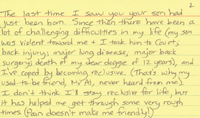 2
The last time I saw you your son had
just been born. Since then there have been a
lot of challenging difficulties in my life (my son
was violent toward me & I took him to Court,
back injury, major lung disease, major back
surgery, death of my dear doggie of 12 years), and
I've coped by becoming reclusive. (That's why my
used-to-be friend, never heard from me).
I don't think I'll stay reclusive for life, but
it has helped me get through some very rough
times. (Pain doesn't make me friendly!)